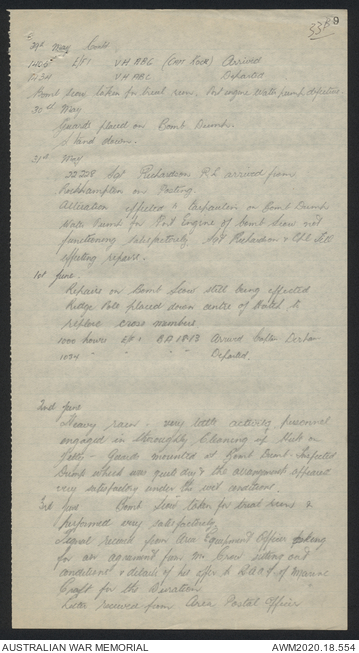 33A 9
29th May Contd.
1405 L/1 VH ABC (Capt Rock) Arrived
1434 VH ABC Departed
Bomb Scow taken for trial run. Port engine water pump defective.
30th May
Guards placed on Bomb Dump.
Stand down.
31st May
22228 Sgt Richardson R.L arrived from
Rockhampton on Posting
Alteration effected to on Bomb Dump
Water Pump for Port Engine of Bomb Scow not
functioning satisfactorily. Sgt Richardson & Cpl
effecting repairs.
1st June.
Repairs on Bomb Scow still being effected
Ridge Pole placed down centre of to
replace cross members.
1000 hours arrived
1034 " " " Departed.
2nd June
Heavy rain, very little activity personnel
engaged in thoroughly cleaning up
Guards mounted at Bomb Dump. Inspected
Dump which was quite dry & the arrangement appeared
very satisfactory under the wet conditions.
3rd June Bomb Scow taken for trial runs &
performed very satisfactorily
Signal received from Area Equipment Officer asking
for an agreement from Mr setting out
conditions & details of his offer to R.A.A.F of Marine
Craft for the Duration.
Letter received from Area Postal Officer
AUSTRALIAN WAR MEMORIAL
AWM2020.18.554